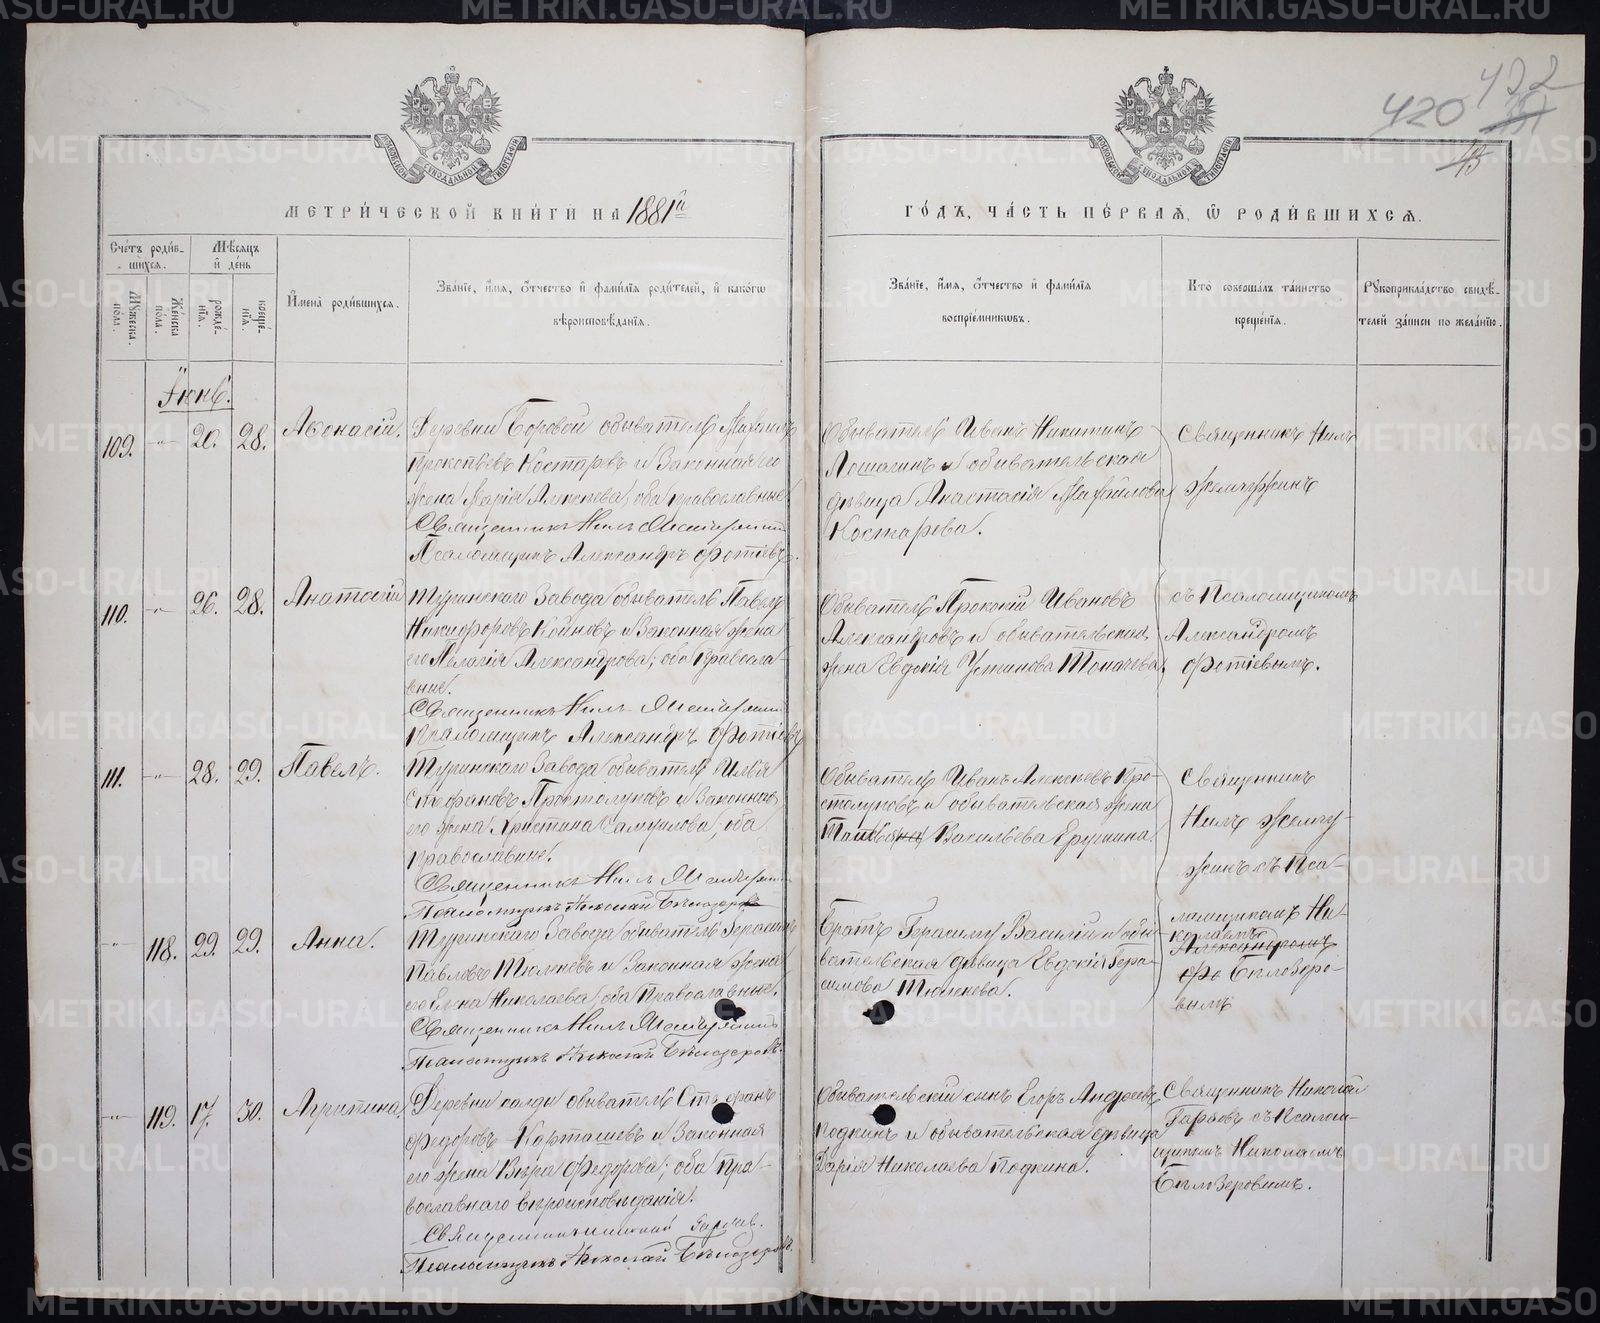 420 432
МЕТРИЧЕСКОЙ КНИГИ НА 1881й
ГОДЪ, ЧАСТЬ ПЕРВАЯ, Ѿ РОДИВШИХСЯ.
Счетъ родив-
шихся.
Мужеска пола.
Женска пола.
Мѣсяцъ
и день
рожде-
нія.
креще-
нія.
Имена родившихся.
Званіе, имя, отчество и фамилія родителей, и какогѡ
вѣроисповѣданія.
Званіе, имя, отчество и фамилія
воспріемниковъ.
Кто совершалъ таинство
крещенія.
Рукоприкладство свидѣ-
телей записи по желанію.
Іюнь.
109. -"- 20. 28. Аѳонасій.
Деревни Боровой обыватель Михаилъ
Прокопьевъ Костаревъ и Законная его
жена Марія Алексѣева, оба православные
Священникъ Нилъ
Псаломщикъ Александръ Фотіевъ.
Обыватель Иванъ Никитинъ
Лошагинъ и обывательская
дѣвица Анастасія Михайлова
Костарева.
Священникъ Нилъ
Жемчужинъ
110. -"- 26. 28. Анатолій
Туринскаго Завода обыватель Павелъ
Никифоровъ Коиновъ и Законная жена
его Пелагія Александрова; оба правосла-
вные.
Священникъ Нилъ
Псаломщикъ Александръ Фотіевъ
Обыватель Прокопій Ивановъ
Александровъ и обывательская
жена Евдокія Устинова Токачева.
съ Псаломщикомъ
Александромъ
Фотіевымъ.
111. -"- 28. 29. Павелъ.
Туринскаго Завода обыватель Илья
Стефановъ Простолуповъ и Законная
его жена Христина Самуилова; оба
Православные.
Священникъ Нилъ
Псаломщикъ Николай Бѣлозеровъ
Обыватель Иванъ Алексѣевъ Про-
столуповъ и обывательская жена
Васильева Ерушина.
Священникъ
Нилъ Жемчу-
жинъ съ Пса-
-"- 118. 29. 29. Анна.
Туринскаго Завода обыватель Герасимъ
Павловъ Тюленевъ и Законная жена
его Елена Николаева, оба Православные.
Священникъ Нилъ
Псаломщикъ Николай Бѣлозеровъ.
Братъ Герасиму Василій и обы-
вательская дѣвица Евдокія Гера-
симова Тюленева.
ломщикомъ Ни-
колаемъ
Александромъ
Фо Бѣлозеро-
вымъ
-"- 119. 17. 30. Агрипина.
Деревни Салды обыватель Стефанъ
Федоровъ Карташевъ и Законная
его жена Вѣра Федорова; оба пра-
вославнаго вѣроисповѣданія.
Священникъ Николай Гаряев.
Псаломщикъ Николай Бѣлозеровъ.
Обывательскій сынъ Егоръ Андреевъ
Подкинъ и обывательская дѣвица
Дарія Николаева Подкина.
Священникъ Николай
Гаряевъ съ Псалом-
щикомъ Николаемъ
Бѣлозеровымъ.
METRIKI.GASO-URAL.RU